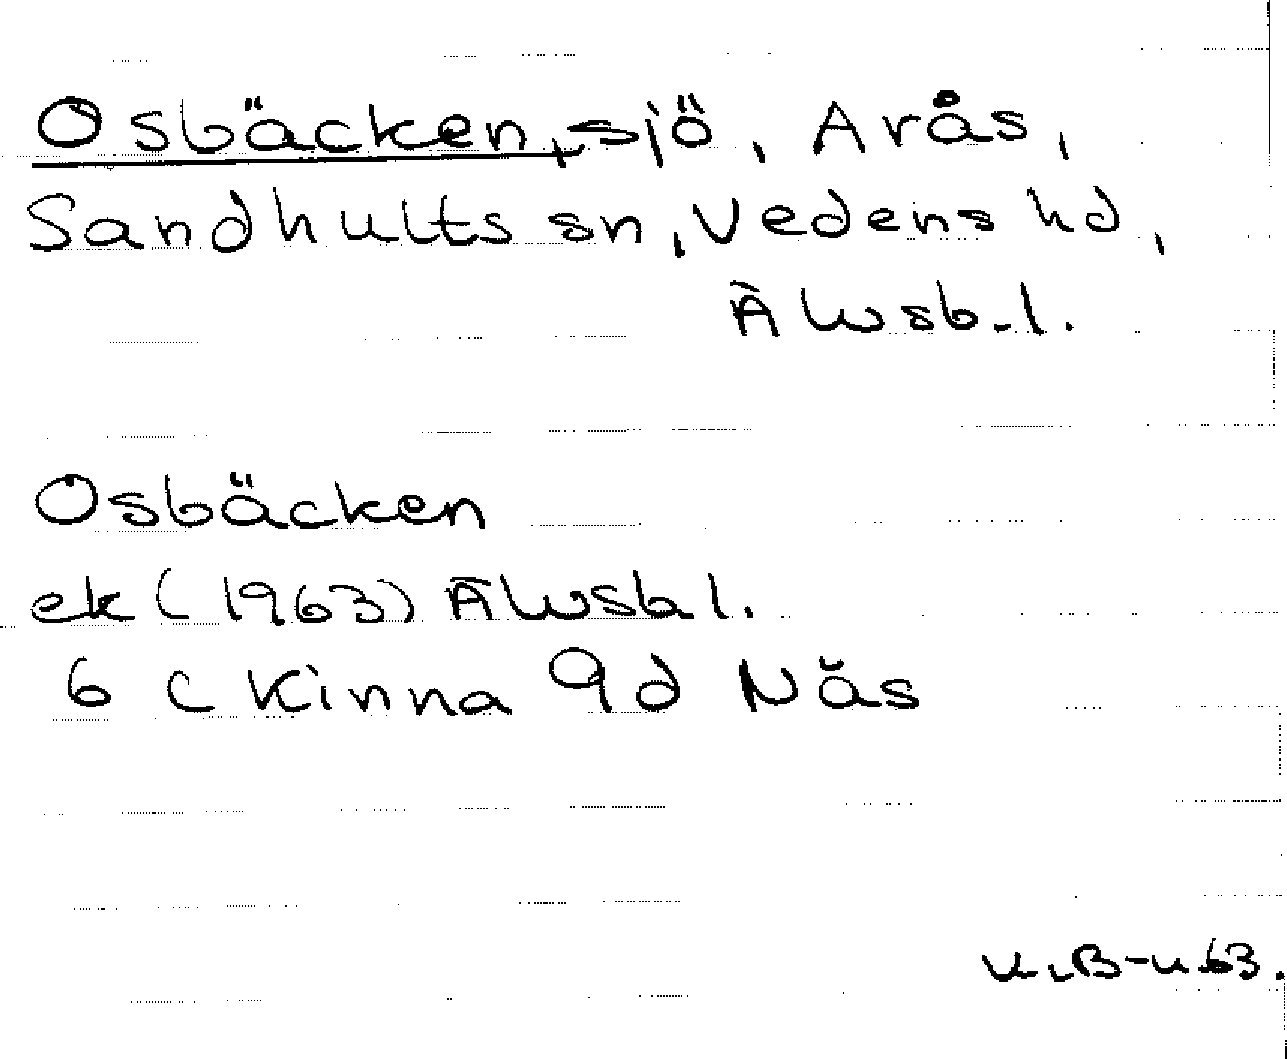 Osbäcken, sjö, Arås,
Sandhults sn, Vedens hd,
Älvsb. l.
Osbäcken
ek (1963) Älvsb l.
6 C Kinna 9d Näs